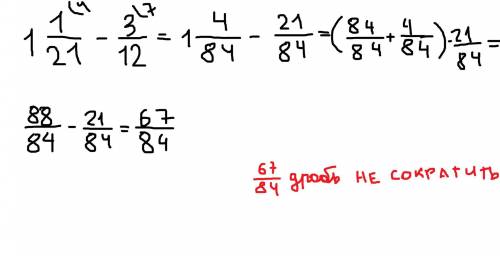 1 1/21 \4 − 3/12 \7 = 1 4/84 − 21/84 = (84/84 + 4/84) - 21/84 =
88/84 − 21/84 = 67/84
67/84 дробь не сократить